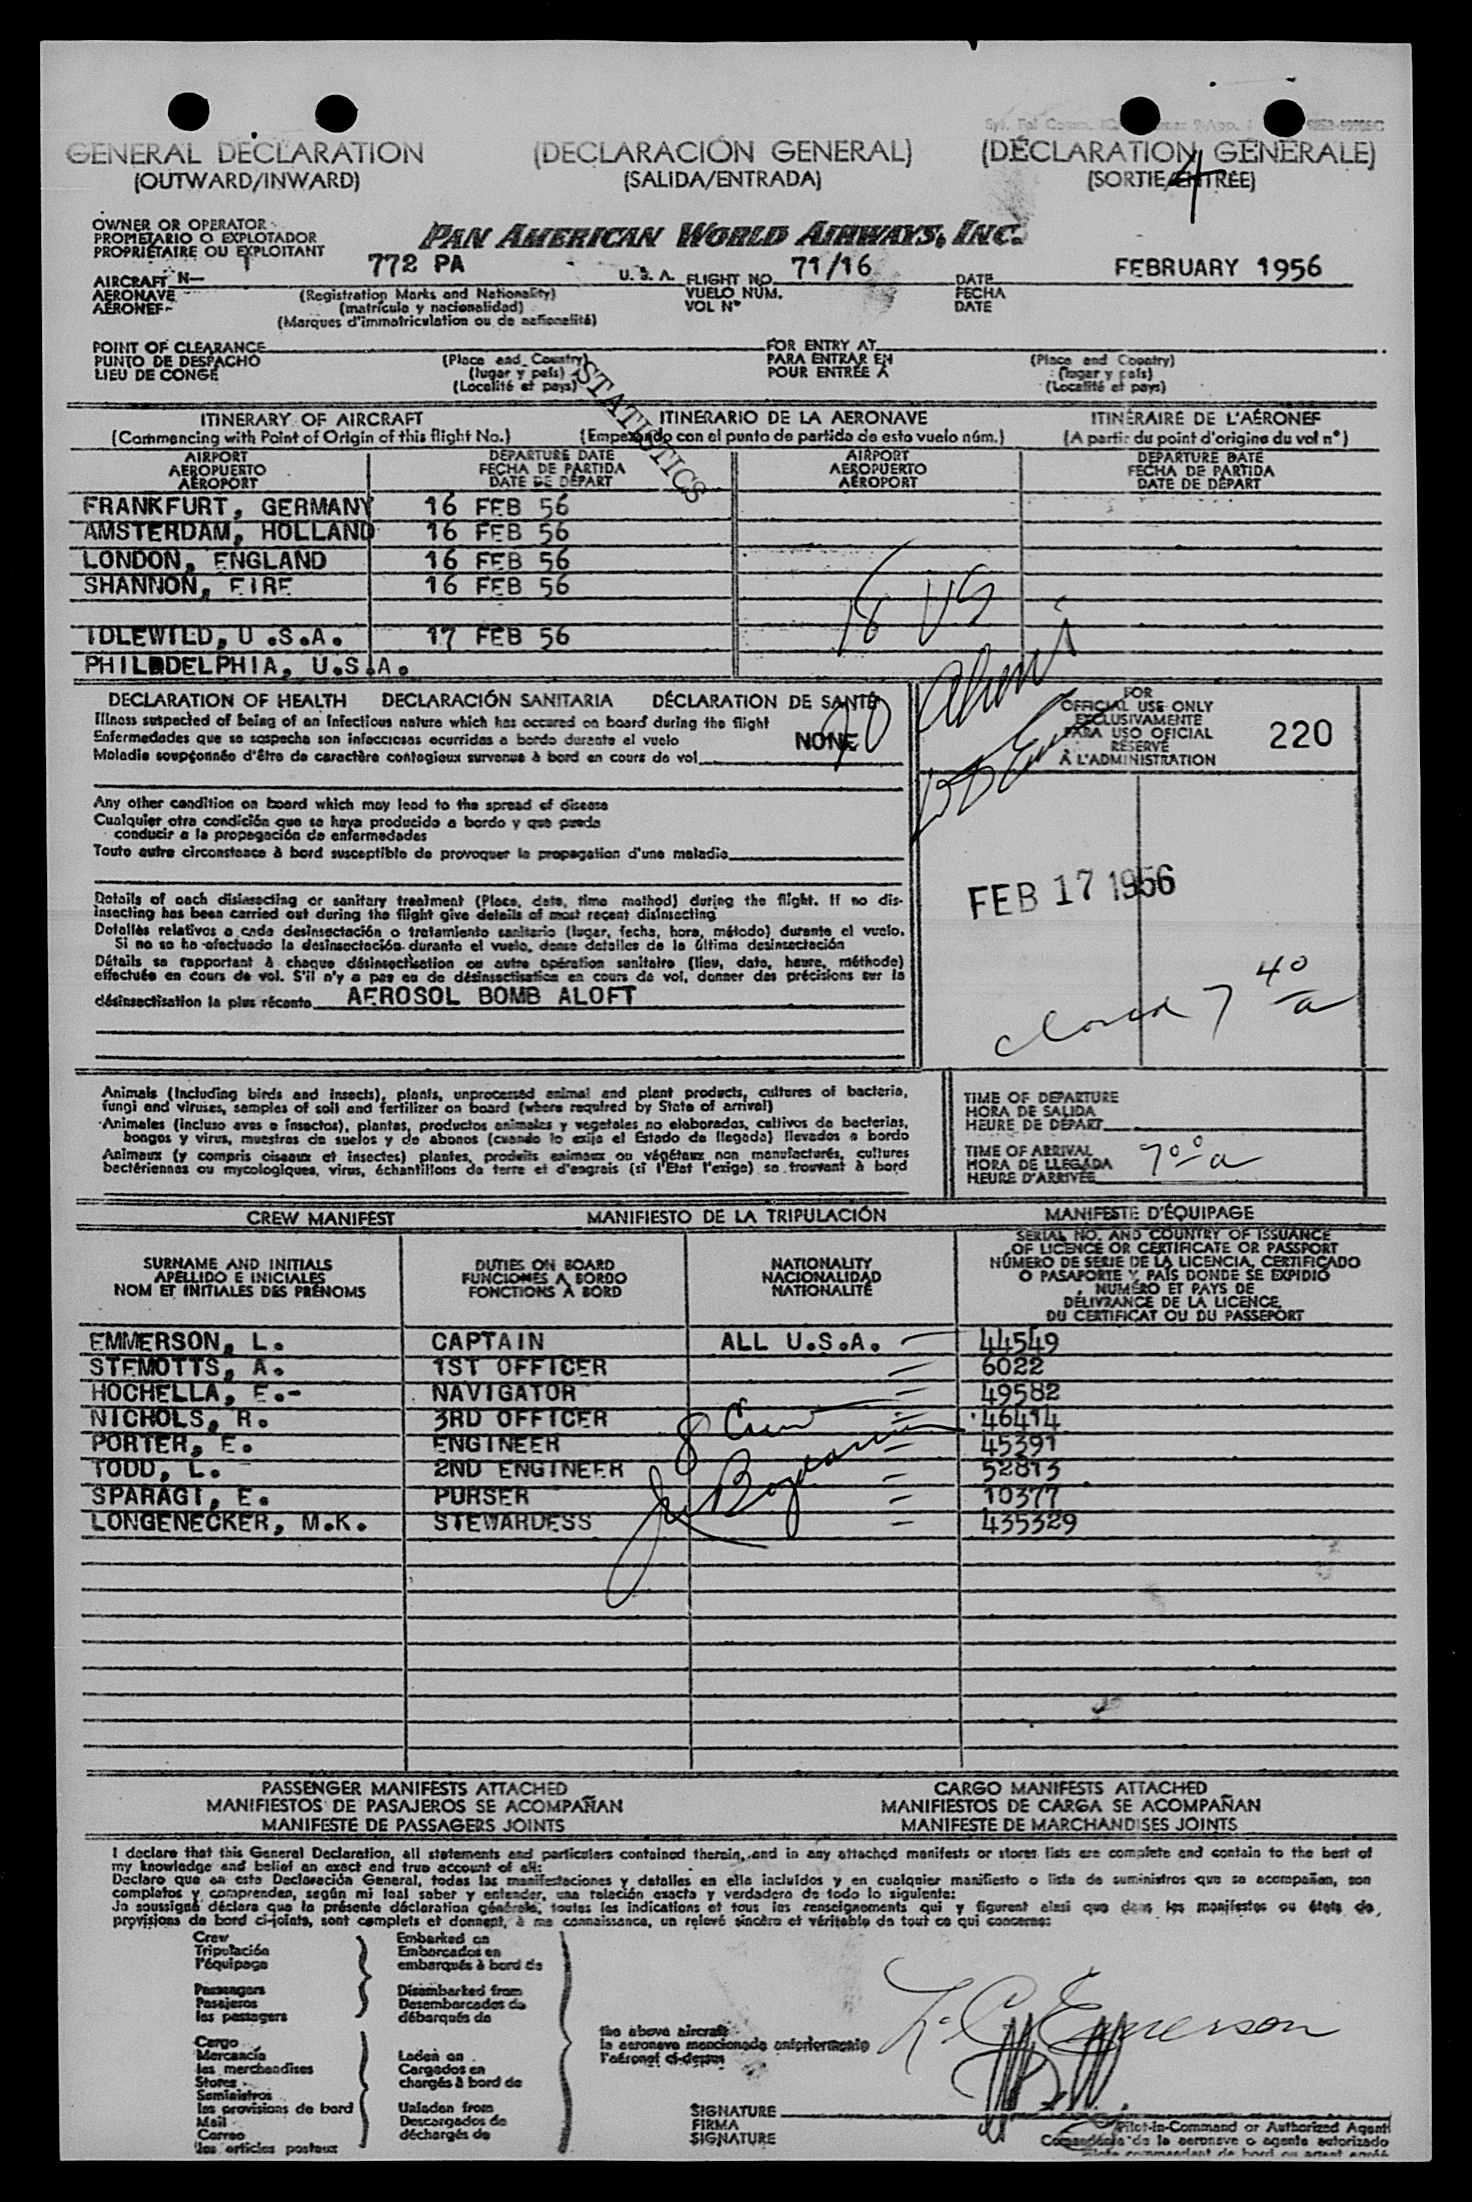 GENERAL DECLARATION (DECLARACIÓN GENERAL) (DÉCLARATION GÉNÉRALE)
(OUTWARD/INWARD) (SALIDA/ENTRADA) (SORTIE/ENTRÉE)
4
OWNER OR OPERATOR
PROPIETARIO O EXPLOTADOR
PROPRIÉTAIRE OU EXPLOITANT
PAN AMERICAN WORLD AIRWAYS, INC.
AIRCRAFT N— 772 PA U.S.A. FLIGHT NO. 71/16 DATE FEBRUARY 1956
AERONAVE (Registration Marks and Nationality) VUELO NÚM. FECHA
AÉRONEF (matrícula y nacionalidad) VOL Nº DATE
(Marques d'immatriculation ou de nationalité)
POINT OF CLEARANCE FOR ENTRY AT
PUNTO DE DESPACHO (Place and Country) PARA ENTRAR EN (Place and Country)
LIEU DE CONGÉ (lugar y país) POUR ENTRÉE À (lugar y país)
(Localité et pays) (Localité et pays)
STATISTICS
ITINERARY OF AIRCRAFT ITINERARIO DE LA AERONAVE ITINÉRAIRE DE L'AÉRONEF
(Commencing with Point of Origin of this flight No.) (Empezando con el punto de partida de este vuelo núm.) (A partir du point d'origine du vol nº)
AIRPORT DEPARTURE DATE AIRPORT DEPARTURE DATE
AEROPUERTO FECHA DE PARTIDA AEROPUERTO FECHA DE PARTIDA
AÉROPORT DATE DE DÉPART AÉROPORT DATE DE DÉPART
FRANKFURT, GERMANY 16 FEB 56
AMSTERDAM, HOLLAND 16 FEB 56
LONDON, ENGLAND 16 FEB 56
SHANNON, EIRE 16 FEB 56
18 US
IDLEWILD, U.S.A. 17 FEB 56
PHILADELPHIA, U.S.A.
DECLARATION OF HEALTH DECLARACIÓN SANITARIA DÉCLARATION DE SANTÉ
Illness suspected of being of an infectious nature which has occured on board during the flight
Enfermedades que se sospecha son infecciosas ocurridas a bordo durante el vuelo NONE
Maladie soupçonnée d'être de caractère contagieux survenue à bord en cours de vol
FOR
OFFICIAL USE ONLY
EXCLUSIVAMENTE
PARA USO OFICIAL
RÉSERVÉ
À L'ADMINISTRATION
220
Any other condition on board which may lead to the spread of disease
Cualquier otra condición que se haya producido a bordo y que pueda
conducir a la propagación de enfermedades
Toute autre circonstance à bord susceptible de provoquer la propagation d'une maladie
FEB 17 1956
Details of each disinsecting or sanitary treatment (Place, date, time method) during the flight. If no dis-
insecting has been carried out during the flight give details of most recent disinsecting
Detalles relativos a cada desinsectación o tratamiento sanitario (lugar, fecha, hora, método) durante el vuelo.
Si no se ha efectuado la desinsectación durante el vuelo, dense detalles de la última desinsectación
Détails se rapportant à chaque désinsectisation ou autre opération sanitaire (lieu, date, heure, méthode)
effectuée en cours de vol. S'il n'y a pas eu de désinsectisation en cours de vol, donner des précisions sur la
désinsectisation la plus récente AEROSOL BOMB ALOFT
7 40 a
Animals (Including birds and insects), plants, unprocessed animal and plant products, cultures of bacteria,
fungi and viruses, samples of soil and fertilizer on board (where required by State of arrival)
Animales (incluso aves e insectos), plantas, productos animales y vegetales no elaborados, cultivos de bacterias,
hongos y virus, muestras de suelos y de abonos (cuando lo exija el Estado de llegada) llevados a bordo
Animaux (y compris oiseaux et insectes) plantes, produits animaux ou végétaux non manufacturés, cultures
bactériennes ou mycologiques, virus, échantillons de terre et d'engrais (si l'Etat l'exige) se trouvant à bord
TIME OF DEPARTURE
HORA DE SALIDA
HEURE DE DÉPART
TIME OF ARRIVAL
HORA DE LLEGADA 7 00 a
HEURE D'ARRIVÉE
CREW MANIFEST MANIFIESTO DE LA TRIPULACIÓN MANIFESTE D'ÉQUIPAGE
SURNAME AND INITIALS
APELLIDO E INICIALES
NOM ET INITIALES DES PRÉNOMS
DUTIES ON BOARD
FUNCIONES A BORDO
FONCTIONS À BORD
NATIONALITY
NACIONALIDAD
NATIONALITÉ
SERIAL NO. AND COUNTRY OF ISSUANCE
OF LICENCE OR CERTIFICATE OR PASSPORT
NÚMERO DE SERIE DE LA LICENCIA, CERTIFICADO
O PASAPORTE Y PAÍS DONDE SE EXPIDIÓ
NUMÉRO ET PAYS DE
DÉLIVRANCE DE LA LICENCE,
DU CERTIFICAT OU DU PASSEPORT
EMMERSON, L. CAPTAIN ALL U.S.A. 44549
STEMOTTS, A. 1ST OFFICER 6022
HOCHELLA, E.- NAVIGATOR 49582
NICHOLS, R. 3RD OFFICER 8 Crew 46414
PORTER, E. ENGINEER 45391
TODD, L. 2ND ENGINEER 52813
SPARAGI, E. PURSER 10377
LONGENECKER, M.K. STEWARDESS 435329
PASSENGER MANIFESTS ATTACHED CARGO MANIFESTS ATTACHED
MANIFIESTOS DE PASAJEROS SE ACOMPAÑAN MANIFIESTOS DE CARGA SE ACOMPAÑAN
MANIFESTE DE PASSAGERS JOINTS MANIFESTE DE MARCHANDISES JOINTS
I declare that this General Declaration, all statements and particulars contained therein, and in any attached manifests or stores lists are complete and contain to the best of
my knowledge and belief an exact and true account of all:
Declaro que en esta Declaración General, todas las manifestaciones y detalles en ella incluídos y en cualquier manifiesto o lista de suministros que se acompañan, son
completos y comprenden, según mi leal saber y entender, una relación exacta y verdadera de todo lo siguiente:
Je soussigné déclare que la présente déclaration générale, toutes les indications et tous les renseignements qui y figurent ainsi que dans les manifestes ou états de
provisions de bord ci-joints, sont complets et donnent, à ma connaissance, un relevé sincère et véritable de tout ce qui concerne:
Crew Embarked on
Tripulación Embarcados en
l'équipage embarqués à bord de
Passengers Disembarked from
Pasajeros Desembarcados de
les passagers débarqués de
the above aircraft
la aeronave mencionada anteriormente
l'aéronef ci-dessus
L. C. Emmerson
Cargo
Mercancía Laden on
les marchandises Cargados en
Stores chargés à bord de
Suministros
les provisions de bord Unladen from
Mail Descargados de
Correo déchargés de
les articles postaux
SIGNATURE
FIRMA
SIGNATURE
Pilot-in-Command or Authorized Agent
Comandante de la aeronave o agente autorizado
Pilote commandant de bord ou agent agréé